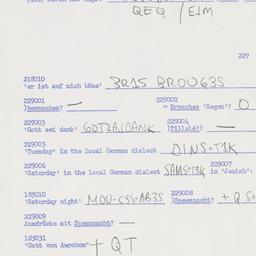 QEQ / EJM
229
218010
'er ist auf mich böse' 3R15 BROUG3S
229001 229002
)berochen? — = Brochen 'Segen'? O
229003 229004
'Gott sei dank' GOTZAJDANK )Tilleló1? —
229005
'Tuesday' in the local German dialect DINS+T1K
229006 229007
'Saturday' in the local German dialect SAMS+T1K in 'Jewish':
185010 229008
'Saturday night' MOU-C3S+AB3S )Speenacht? + Q S+
229009
Ausdrücke mit Speenacht? —
185031
"Gott von Awrohom" + QT